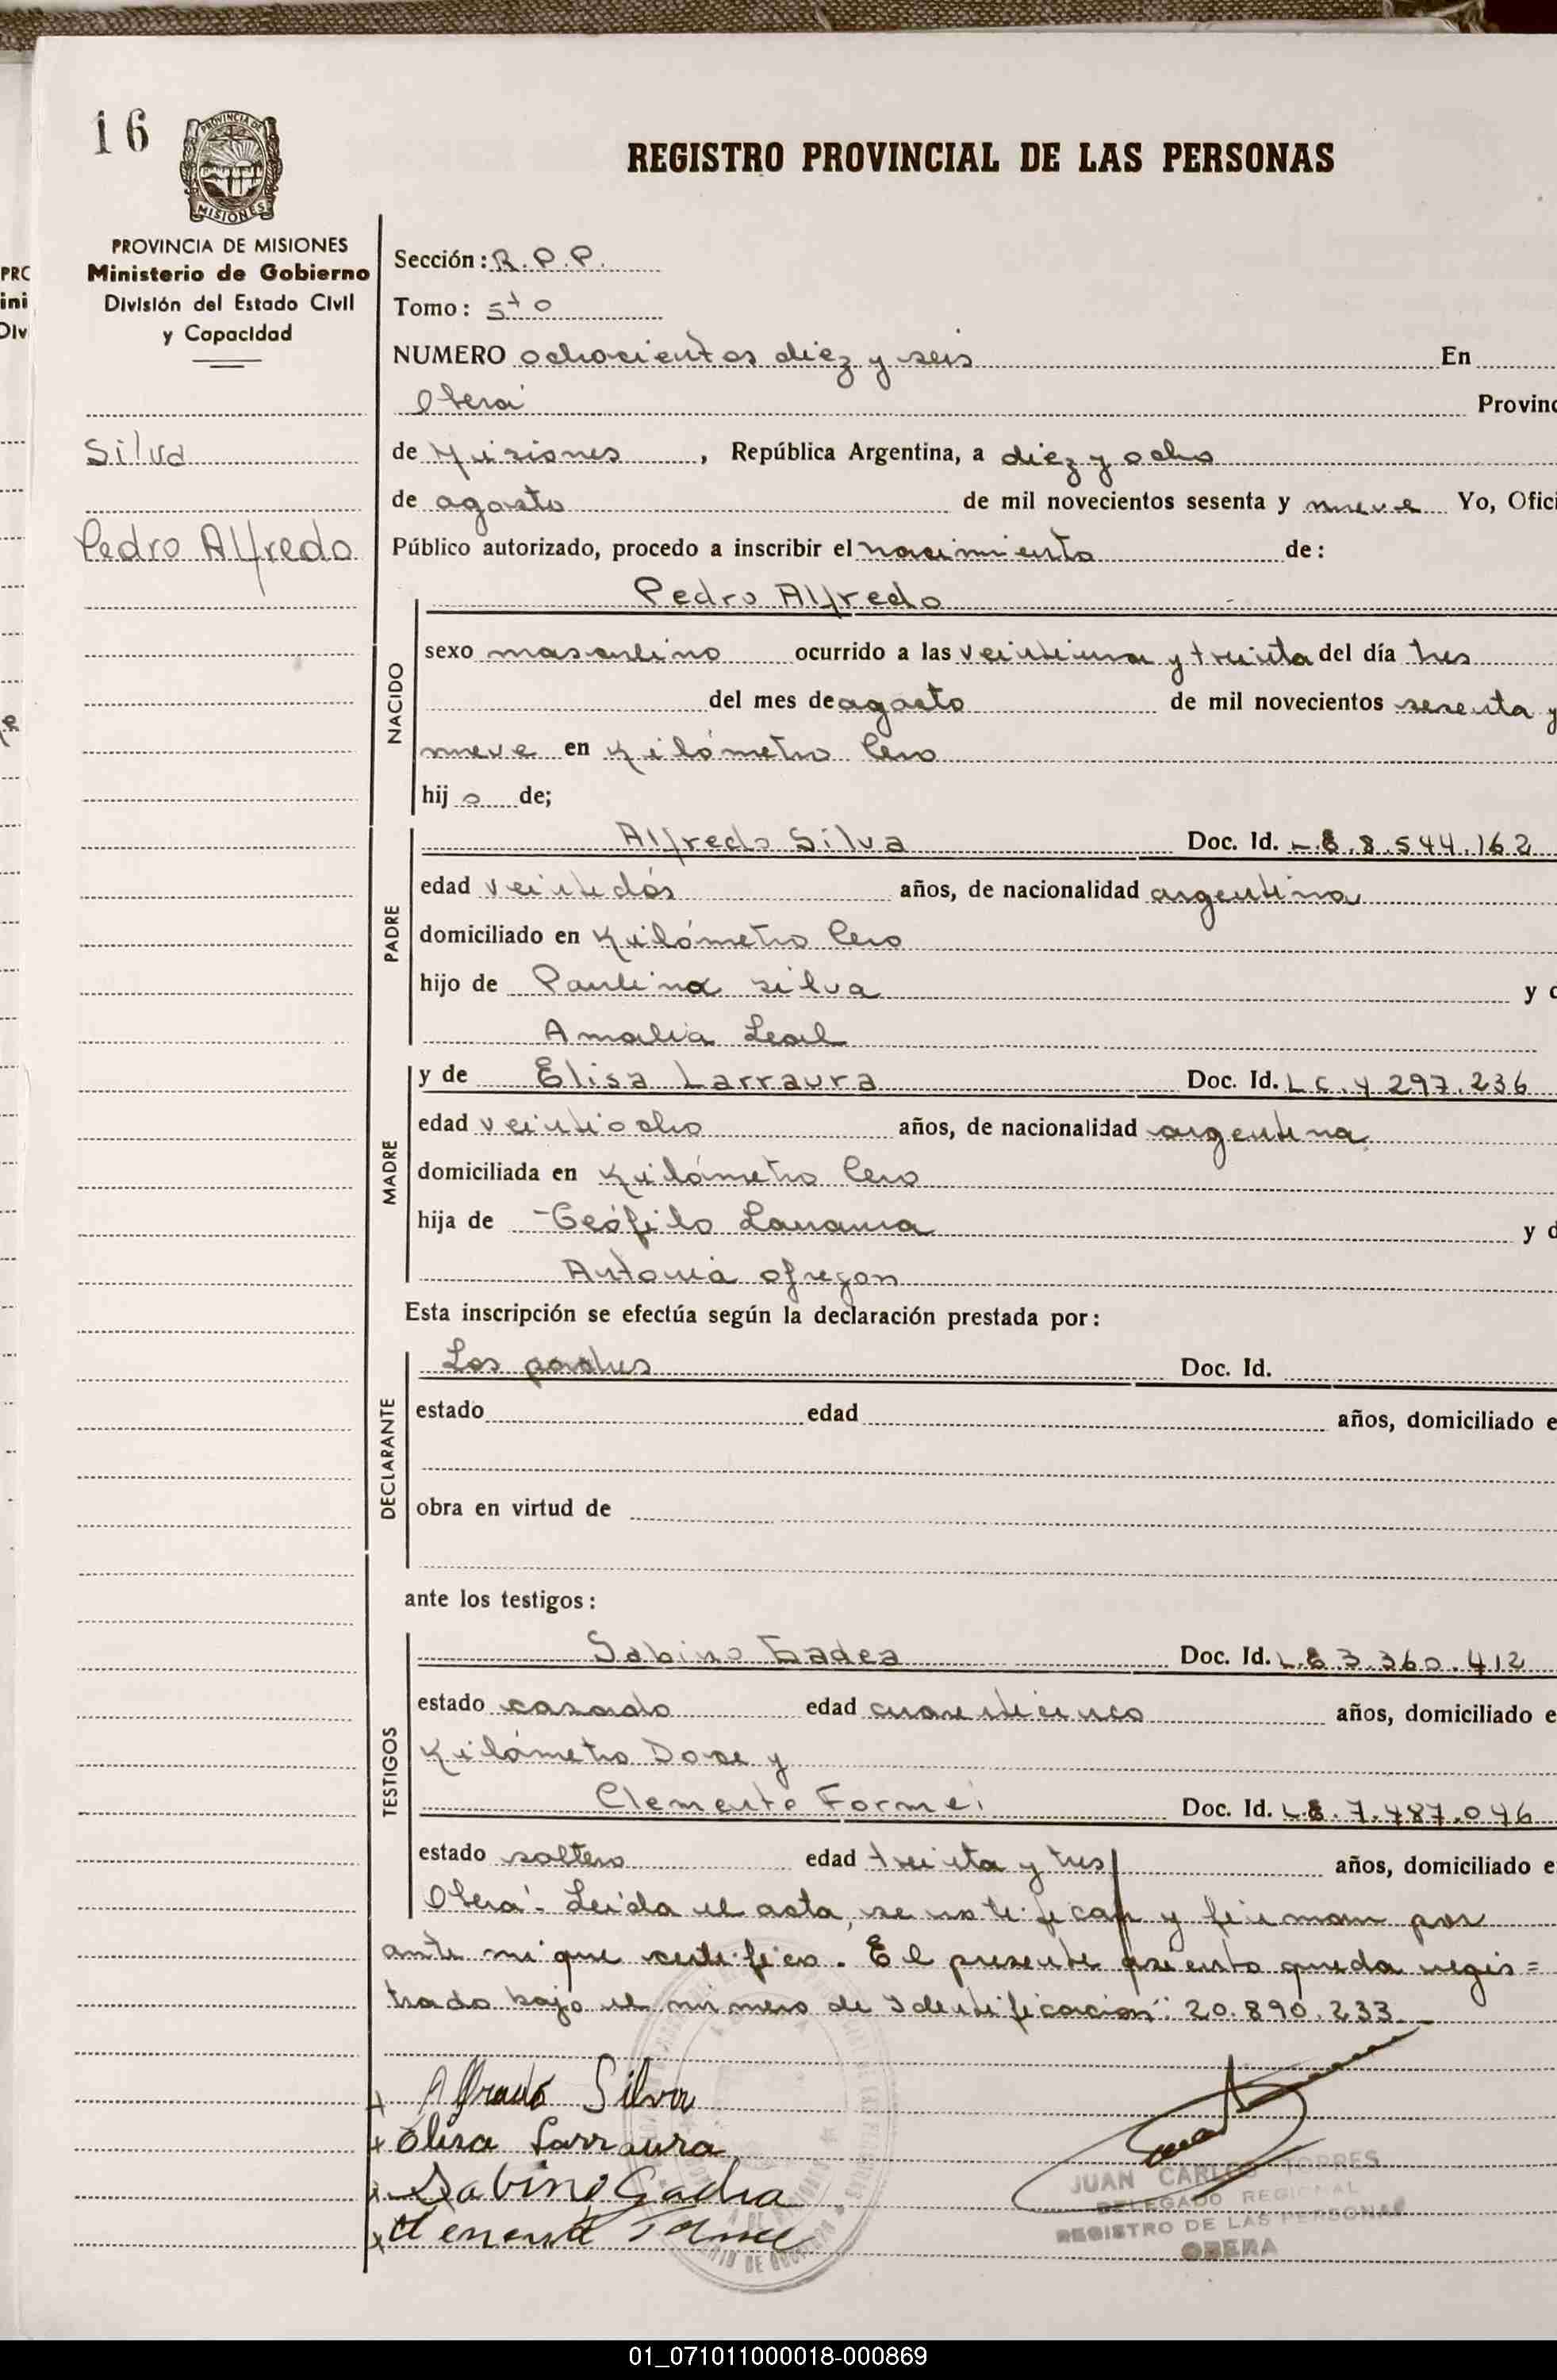 16
PROVINCIA DE MISIONES
REGISTRO PROVINCIAL DE LAS PERSONAS
PROVINCIA DE MISIONES
Ministerio de Gobierno
División del Estado Civil
y Capacidad
Silva
Pedro Alfredo
Sección: R.P.P.
Tomo: 5to
NUMERO ochocientos diez y seis En
Oberá Provinc
de Misiones, República Argentina, a diez y ocho
de agosto de mil novecientos sesenta y nueve Yo, Ofici
Público autorizado, procedo a inscribir el nacimiento de:
NACIDO
Pedro Alfredo
sexo masculino ocurrido a las veintiuna y treinta del día tres
del mes de agosto de mil novecientos sesenta y
nueve en Kilómetro Cero
hijo de;
PADRE
Alfredo Silva Doc. Id. L.E. 8.544.162
edad veintidós años, de nacionalidad argentina
domiciliado en Kilómetro Cero
hijo de Paulina Silva y d
Amalia Leal
MADRE
y de Elisa Larraura Doc. Id. L.C. 4.297.236
edad veintiocho años, de nacionalidad argentina
domiciliada en Kilómetro Cero
hija de Teófilo Larraura y d
Antonia Ofregon
Esta inscripción se efectúa según la declaración prestada por:
DECLARANTE
Los padres Doc. Id.
estado edad años, domiciliado e
obra en virtud de
ante los testigos:
TESTIGOS
Sabino Gadea Doc. Id. L.E 3.360.412
estado casado edad cuarenticinco años, domiciliado e
Kilómetro Doce y
Clemente Formei Doc. Id. L.E. 7.487.046
estado soltero edad treinta y tres años, domiciliado e
Oberá. Leída el acta, se notifican y firman por
ante mi que certifico. El presente asiento queda regis=
trado bajo el número de Identificación: 20.890.233
Alfredo Silva
Elisa Larraura
Sabino Gadea
JUAN CARLOS TORRES
DELEGADO REGIONAL
REGISTRO DE LAS PERSONAS
OBERA
01_071011000018-000869